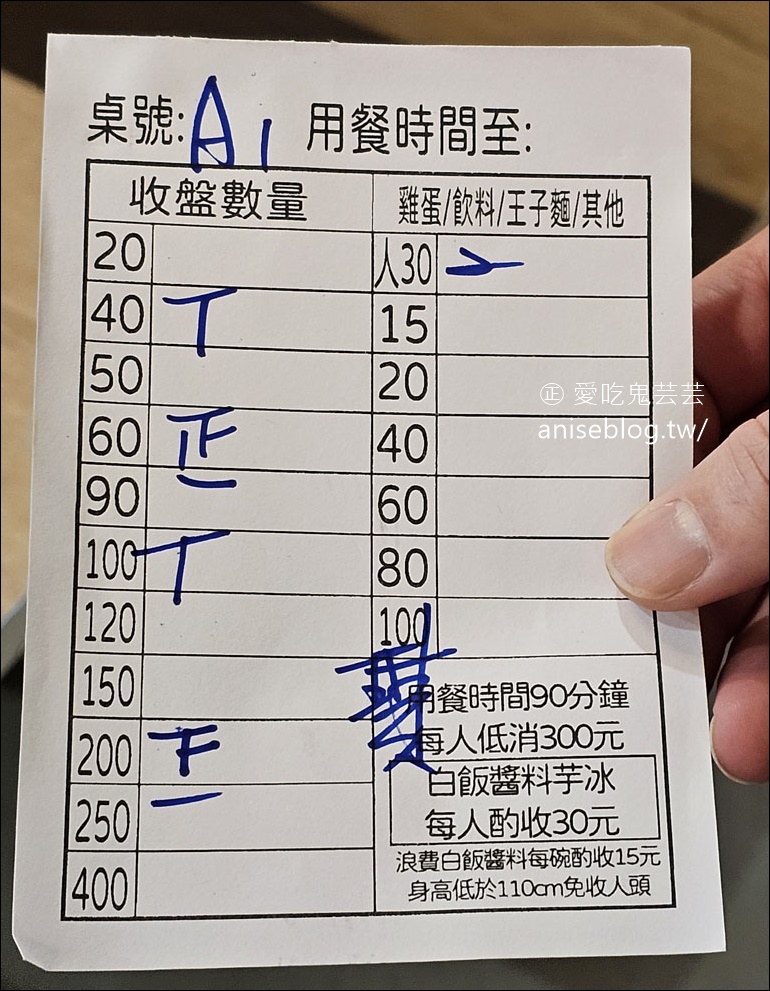 桌號: A1 用餐時間至:
收盤數量 雞蛋/飲料/王子麵/其他
20 人30
40 丅 15
50 20
60 正 40
90 一 60
100 丅 80
120 100
150
用餐時間90分鐘
200
每人低消300元
白飯醬料芋冰
250 一
每人酌收30元
400
浪費白飯醬料每碗酌收15元
身高低於110cm免收人頭
正 愛吃鬼芸芸
aniseblog.tw/